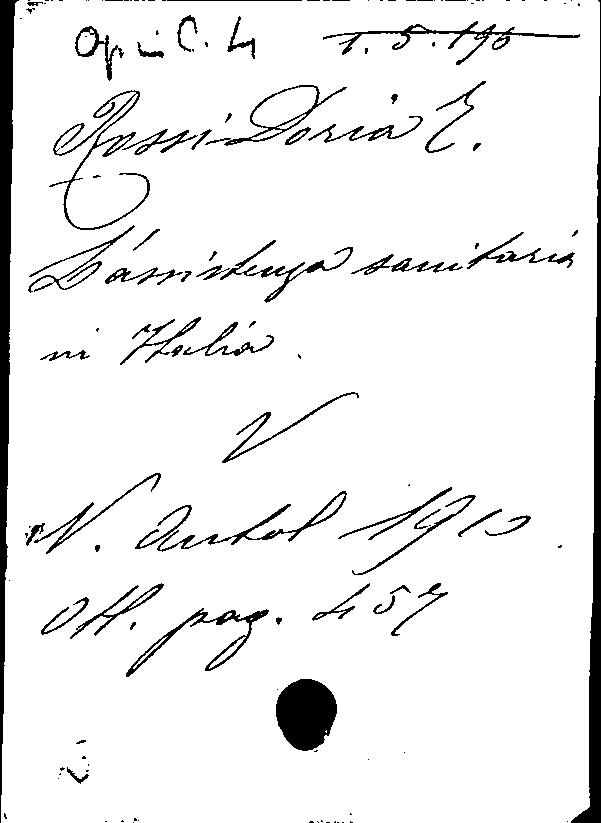 Op. in C. 4 1. 5. 196
Rossi-Doria E.
L'assistenza sanitaria
in Italia.
V
N. Antol 1910.
Ott. pag. 457